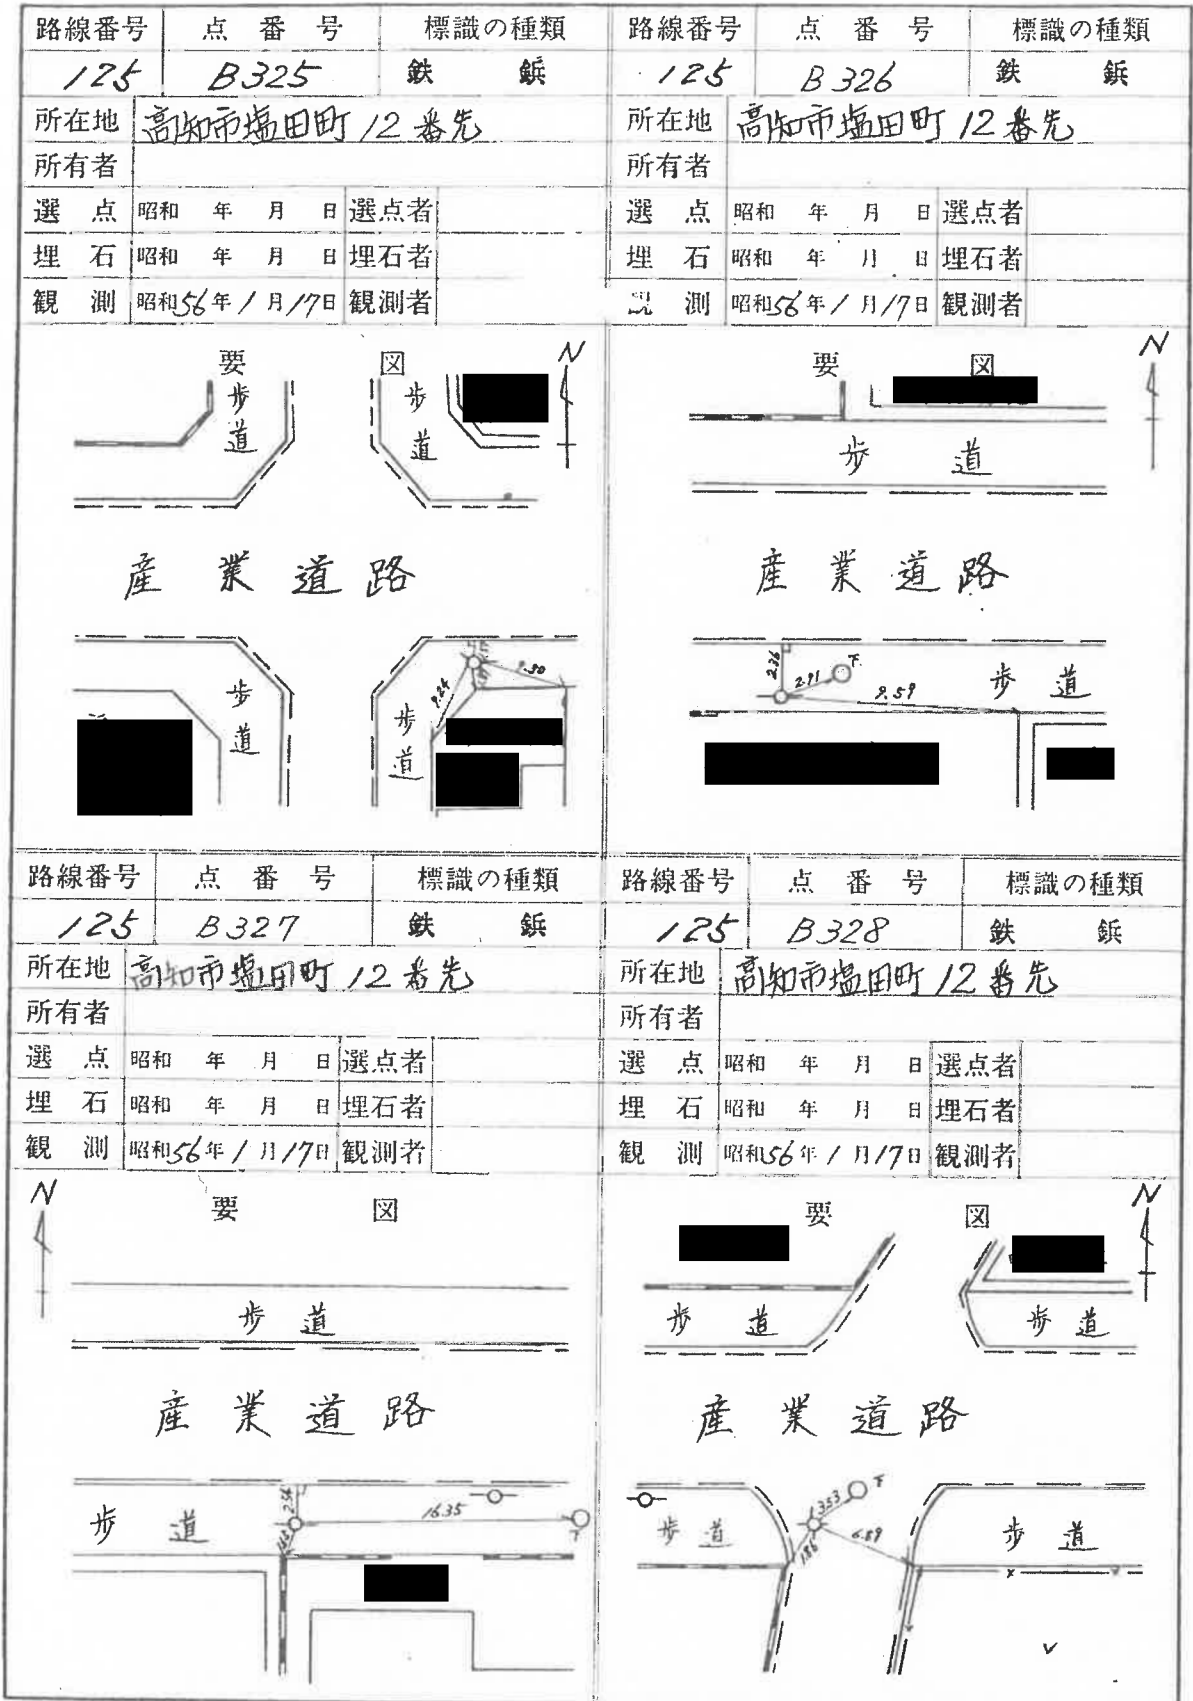 路線番号 点番号 標識の種類
125 B325 鉄鋲
所在地 高知市塩田町12番先
所有者
選点 昭和 年 月 日 選点者
埋石 昭和 年 月 日 埋石者
観測 昭和56年1月17日 観測者
要図
N
歩道
歩道
産業道路
歩道
歩道
9.24
9.30
路線番号 点番号 標識の種類
125 B326 鉄鋲
所在地 高知市塩田町12番先
所有者
選点 昭和 年 月 日 選点者
埋石 昭和 年 月 日 埋石者
測 昭和56年1月17日 観測者
要図
N
歩道
産業道路
2.36
2.91
下
9.59
歩道
路線番号 点番号 標識の種類
125 B327 鉄鋲
所在地 高知市塩田町12番先
所有者
選点 昭和 年 月 日 選点者
埋石 昭和 年 月 日 埋石者
観測 昭和56年1月17日 観測者
要図
N
歩道
産業道路
歩道
2.56
16.35
路線番号 点番号 標識の種類
125 B328 鉄鋲
所在地 高知市塩田町12番先
所有者
選点 昭和 年 月 日 選点者
埋石 昭和 年 月 日 埋石者
観測 昭和56年1月17日 観測者
要図
N
歩道
歩道
産業道路
歩道
3.53
下
6.59
1.86
歩道